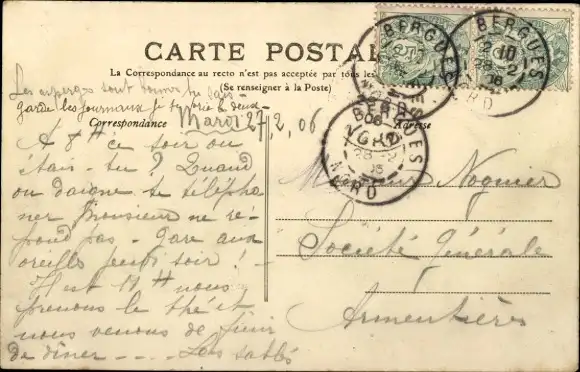 CARTE POSTALE
La Correspondance au recto n'est pas acceptée par tous les
(Se renseigner à la Poste)
Les asperges sont
garde les journaux
Correspondance
Adresse
Mardi 27, 2, 06
A 8H ce soir ou
étais-tu ? Quand
on daigne te télépho
ner Monsieur ne ré-
pond pas - gare aux
oreilles jeudi soir ! -
Il est 11H nous
prenons le thé et
nous venons de finir
de dîner - - - Les sablés
Monsieur Nognier
Société Générale
Armentières
BERGUES
NORD
BERGUES
10
28 - 2
06
NORD
BERGUES
NORD